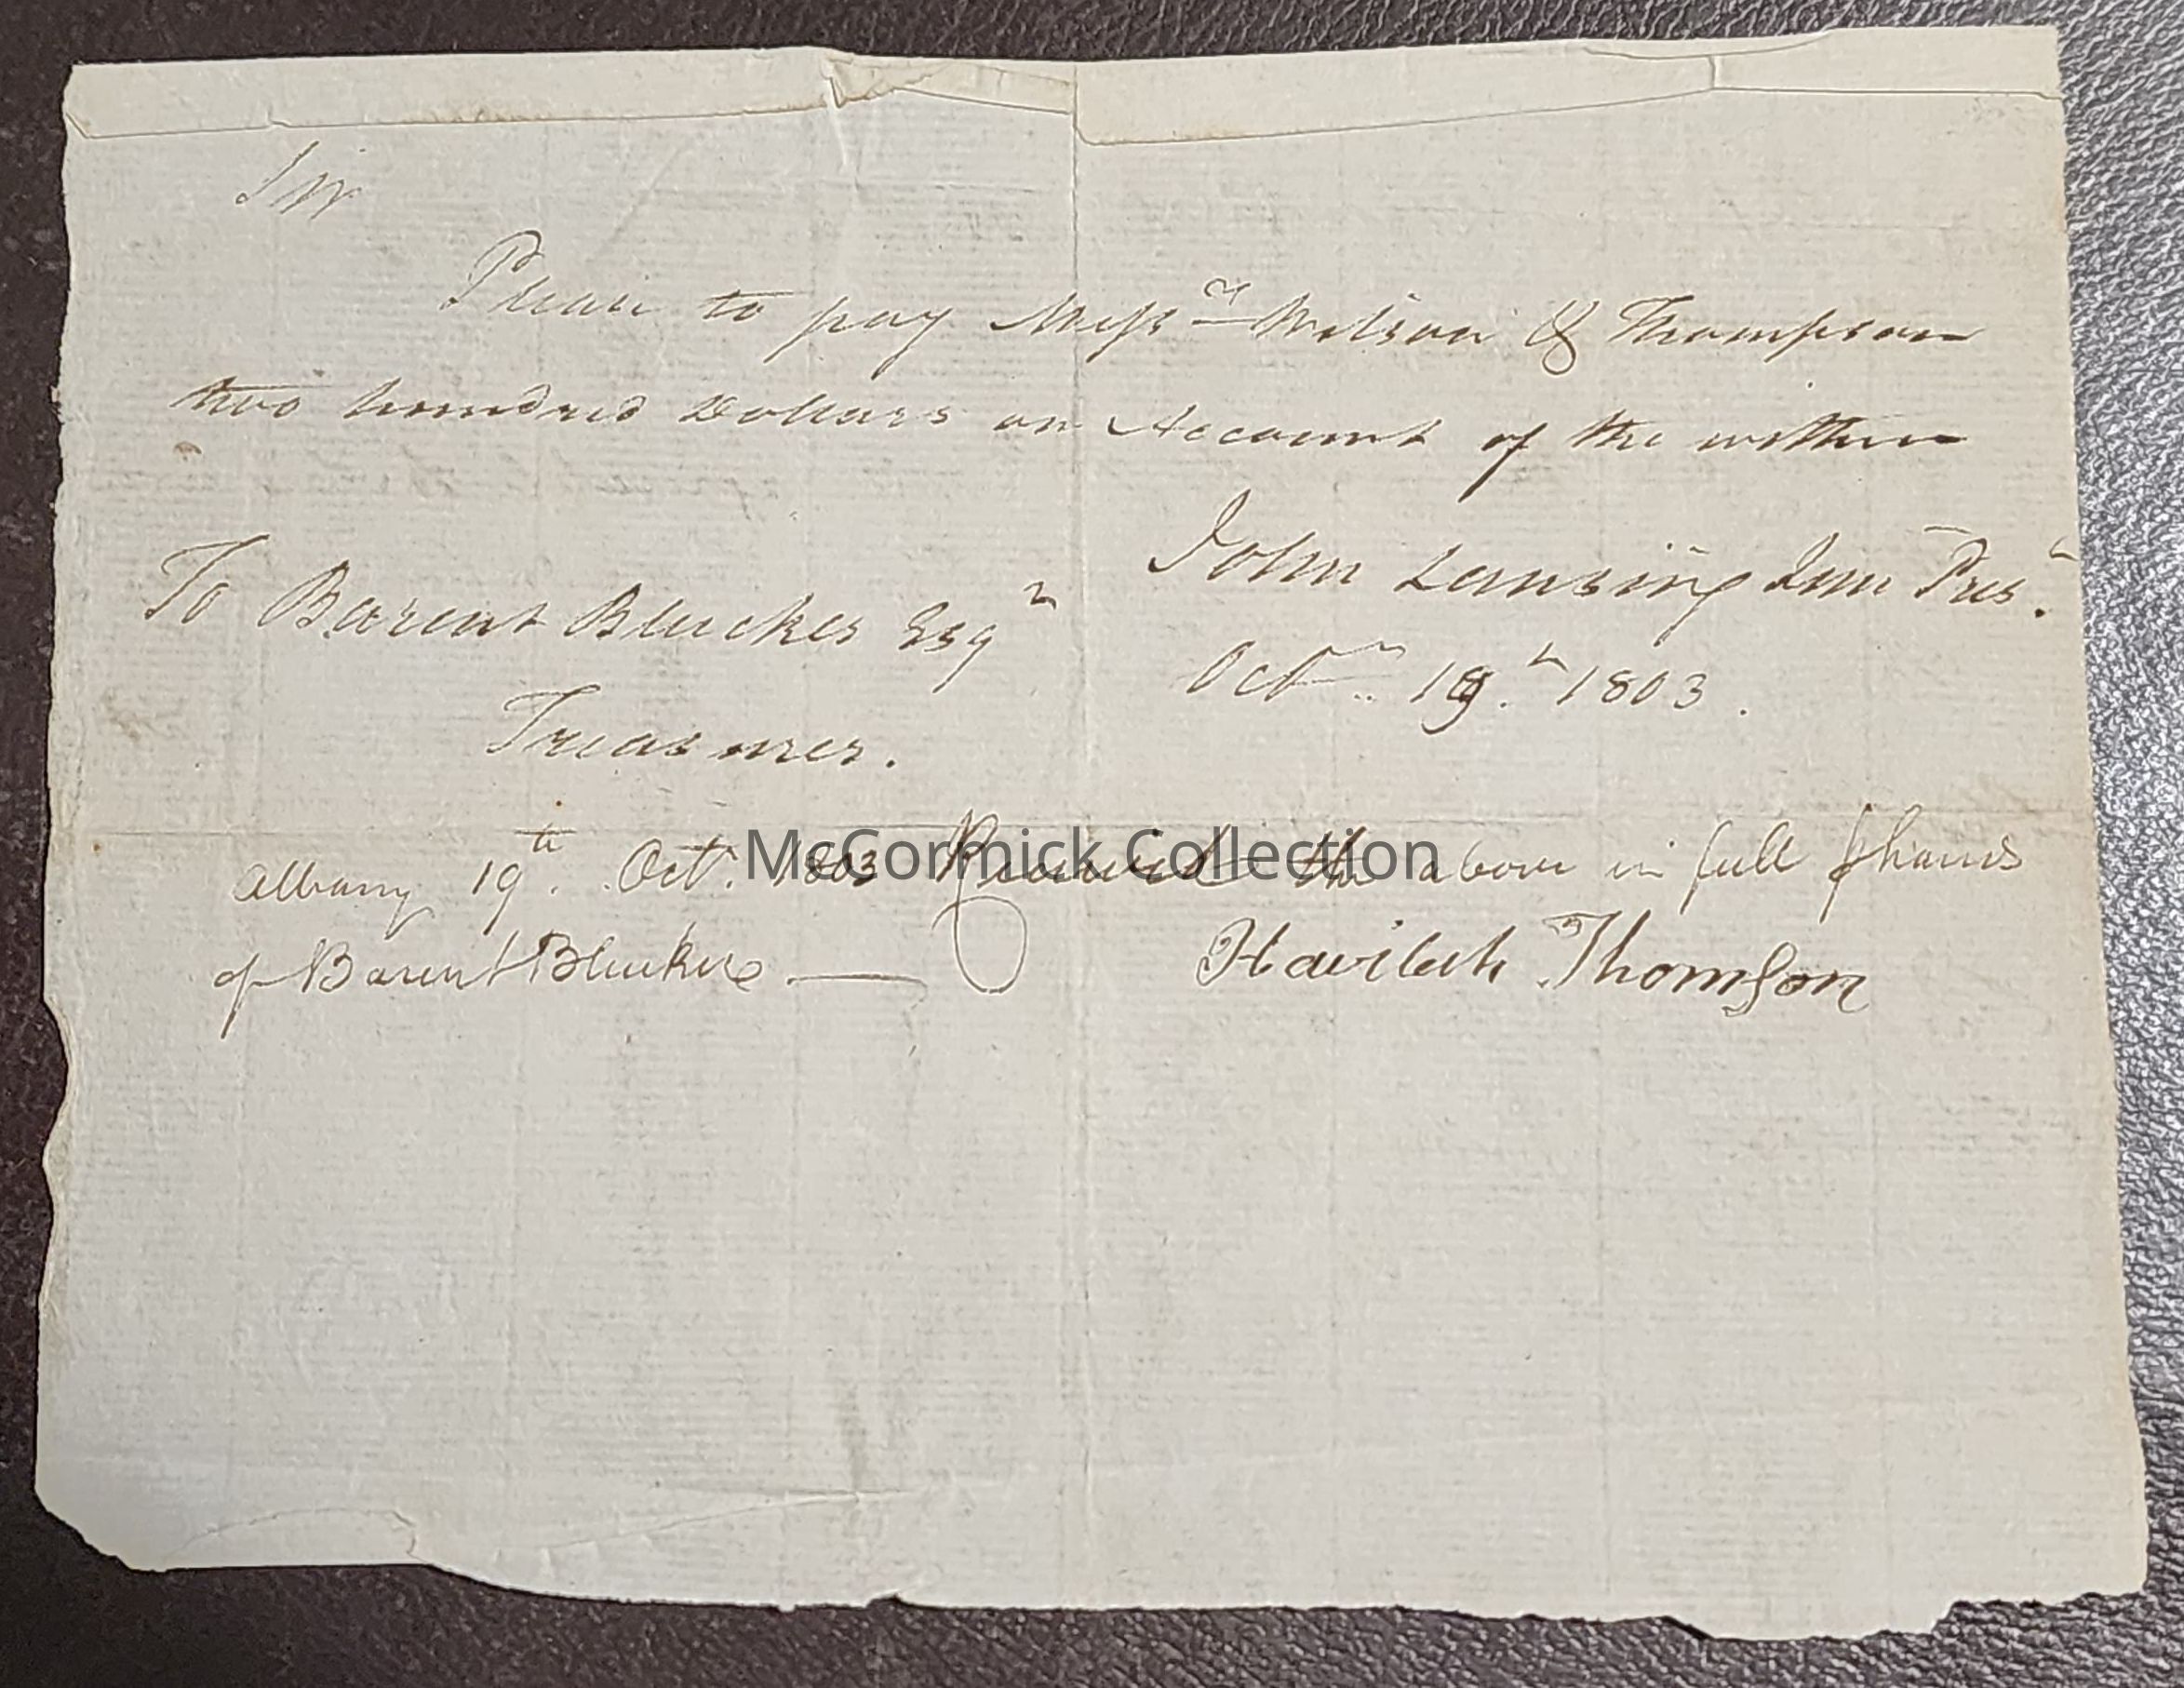 Sir
Please to pay Messrs Wilson & Thompson
two hundred Dollars on Account of the within
John Lansing Jun Prest.
To Barent Bleecker Esqr
Octr 19th 1803.
Treasurer.
Albany 19th. Octr. 1803 Received the above in full p hands
of Barent Bleecker
Havilah Thomson
McCormick Collection